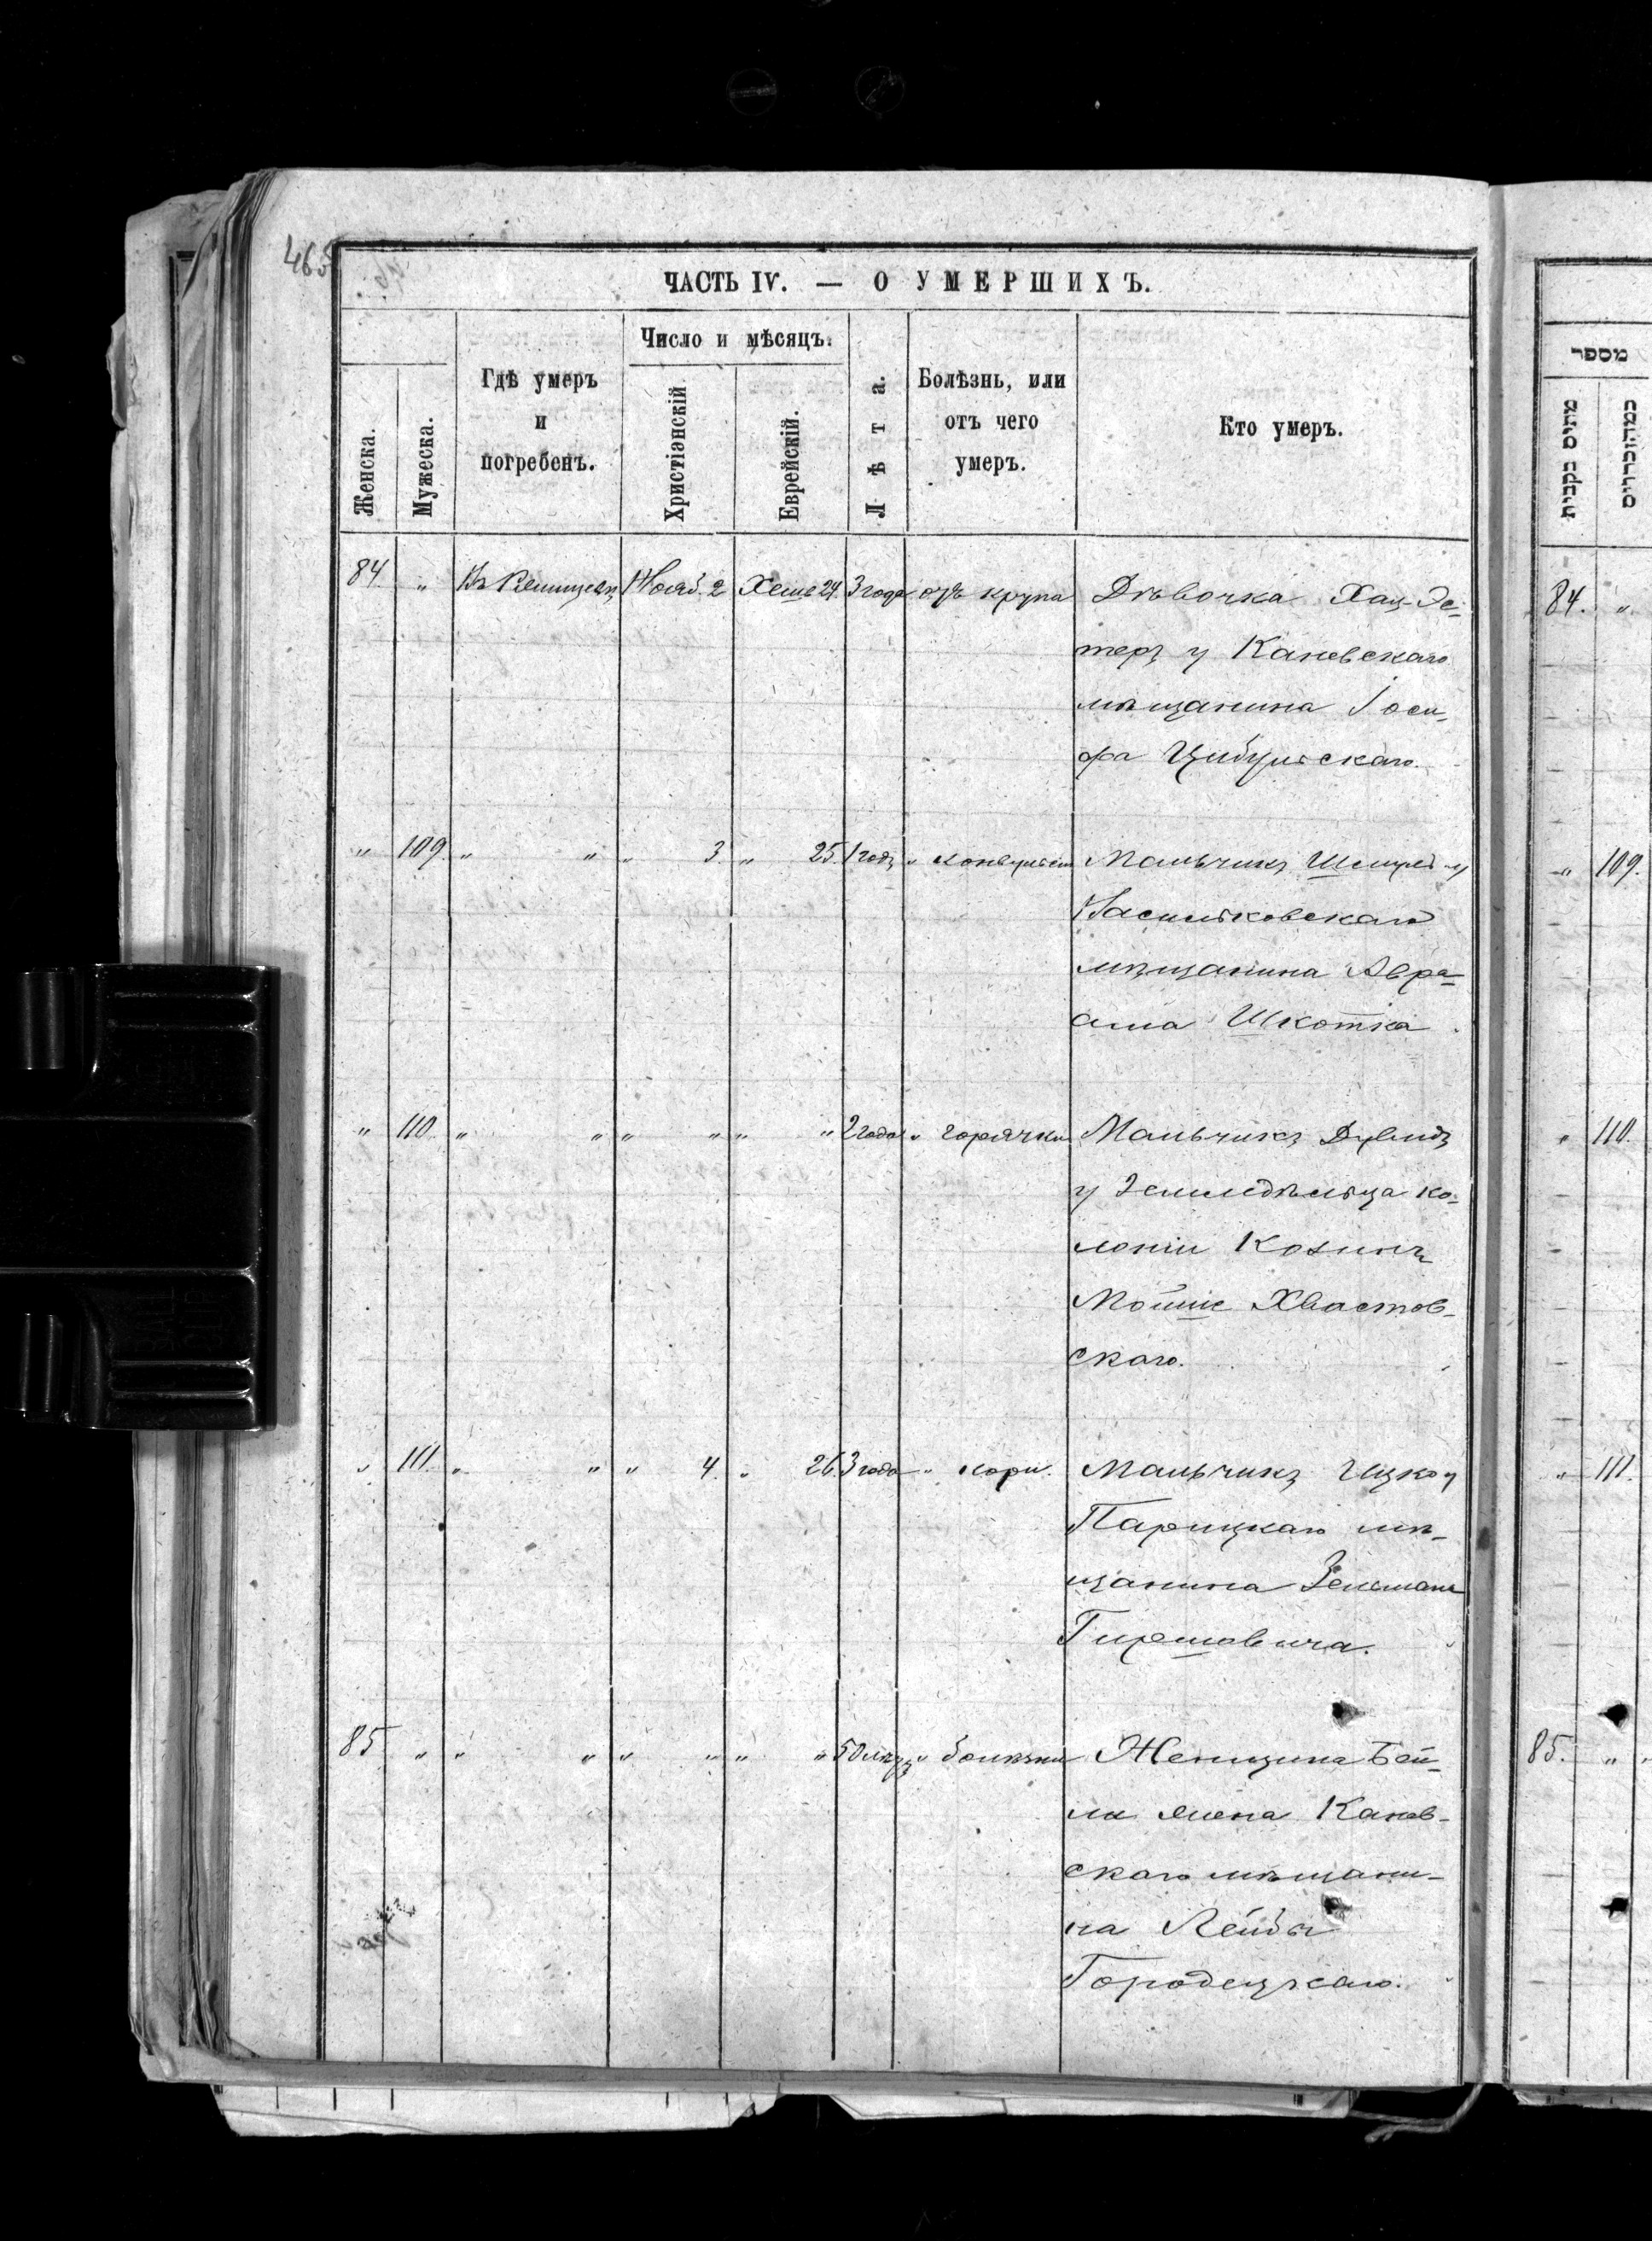 465
ЧАСТЬ IV. — О УМЕРШИХЪ.
Женска.
Мужеска.
Гдѣ умеръ
и
погребенъ.
Число и мѣсяцъ.
Христіанскій
Еврейскій.
Лѣта.
Болѣзнь, или
отъ чего
умеръ.
Кто умеръ.
84 " Въ Нояб. 2 Хеш 24. 3 года отъ крупа Дѣвочка Хая-Эс-
теръ у Каневскаго
мѣщанина Іоси-
фа Цибульскаго.
" 109. " " " 3. " 25. 1 годъ " конвульсіи Мальчикъ Шмуль у
Васильковскаго
мѣщанина Авра-
ама Шкотка
" 110 " " " " " " 2 года " горячки Мальчикъ Дувидъ
у земледѣльца ко-
лоніи Козинъ
Мошие Хвастов-
скаго.
" 111. " " " 4. " 26. 3 года " кори. Мальчикъ Ицко у
Парицкаго мѣ-
щанина Зельмана
Гиршовича.
85 " " " " " " " 50 лѣтъ " болѣзни Женщина Бей-
ла жена Канев-
скаго мѣщани-
на Лейбы
Городецкаго.
מספר
מתים בקבית
כמהזכרים
84. "
" 109.
" 110.
" 111.
85. "